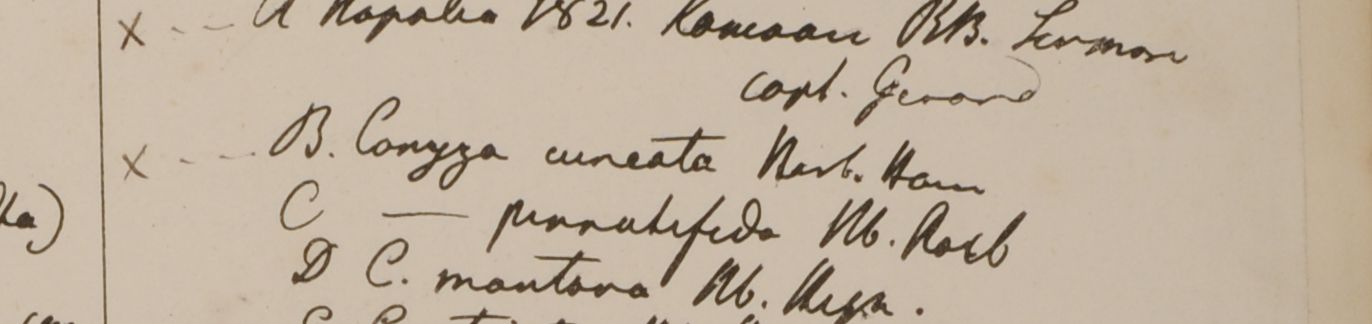 x A Napalia 1821. Kamaon RB.
Capt. Gerard
x B. Conyza cuneata Herb. Ham
C — pinnatifida Hb. Roxb
D C. montana Hb.